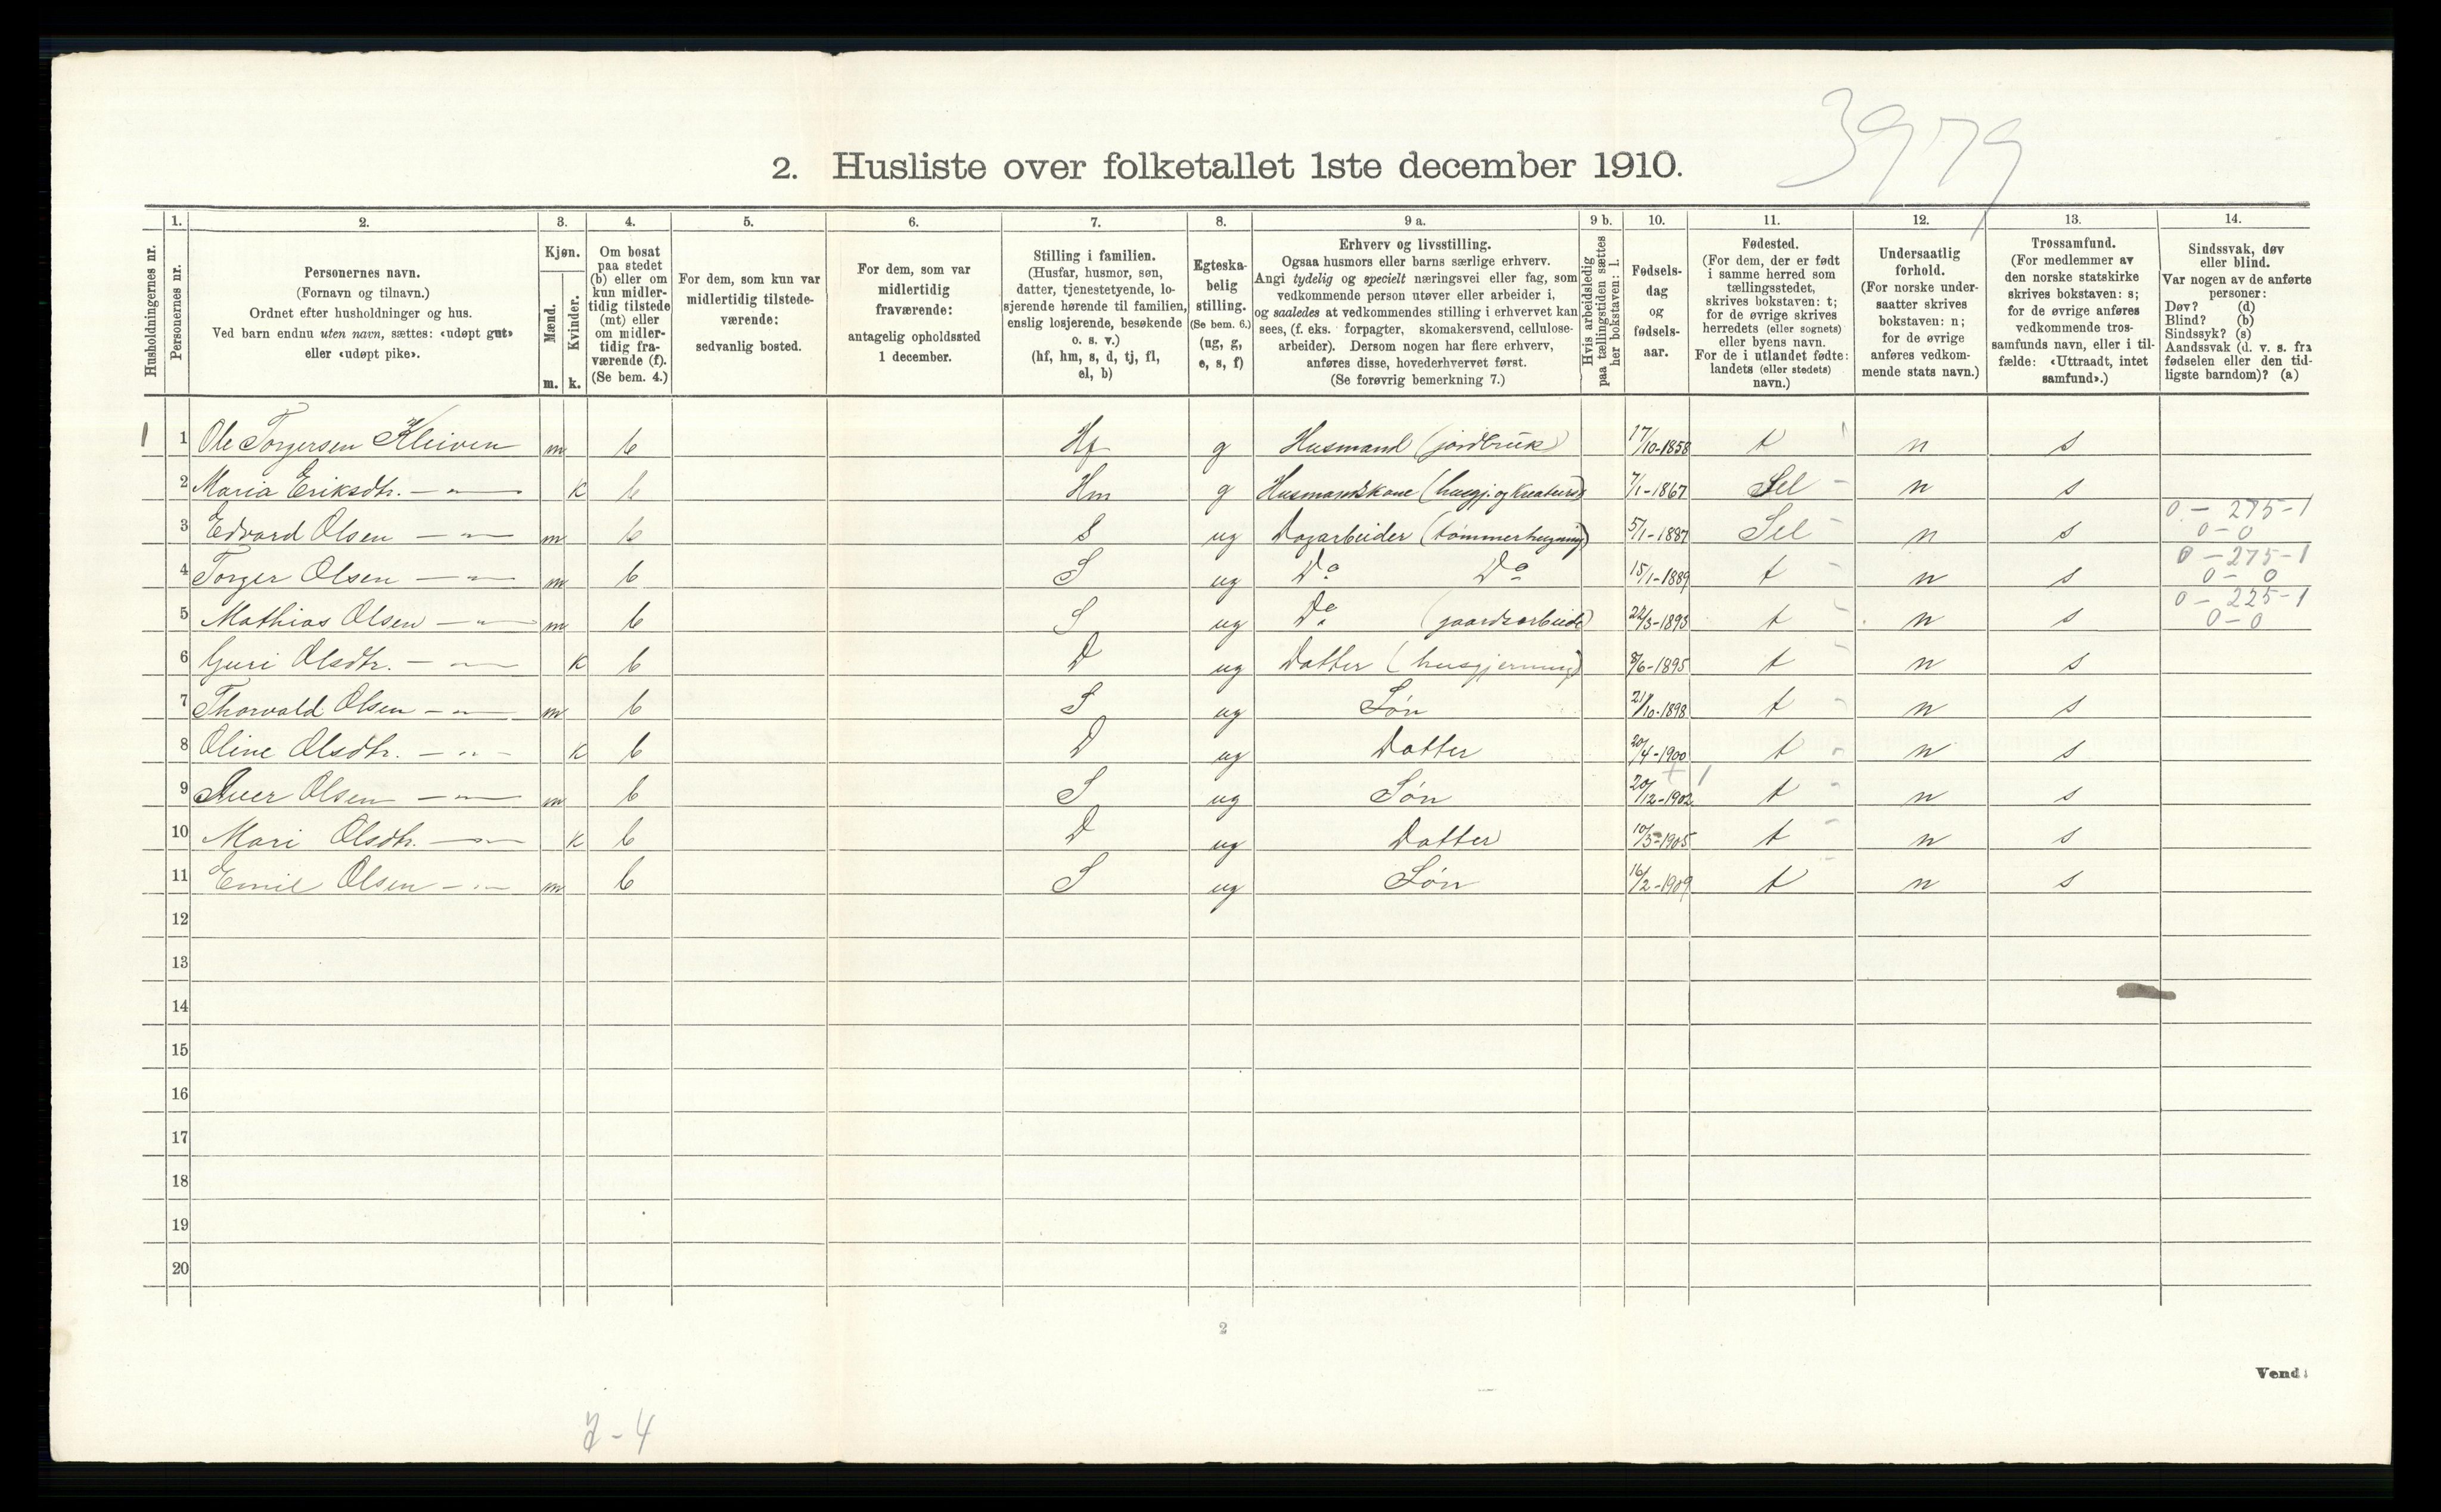 3979
2. Husliste over folketallet 1ste december 1910.
Husholdningernes nr.
1.
Personernes nr.
2.
Personernes navn.
(Fornavn og tilnavn.)
Ordnet efter husholdninger og hus.
Ved barn endnu uten navn, sættes: «udøpt gut»
eller «udøpt pike».
3.
Kjøn.
Mænd.
Kvinder.
m. k.
4.
Om bosat
paa stedet
(b) eller om
kun midler-
tidig tilstede
(mt) eller
om midler-
tidig fra-
værende (f).
(Se bem. 4.)
5.
For dem, som kun var
midlertidig tilstede-
værende:
sedvanlig bosted.
6.
For dem, som var
midlertidig
fraværende:
antagelig opholdssted
1 december.
7.
Stilling i familien.
(Husfar, husmor, søn,
datter, tjenestetyende, lo-
sjerende hørende til familien,
enslig losjerende, besøkende
o. s. v.)
(hf, hm, s, d, tj, fl,
el, b)
8.
Egteska-
belig
stilling.
(Se bem. 6.)
(ug, g,
e, s, f)
9 a.
Erhverv og livsstilling.
Ogsaa husmors eller barns særlige erhverv.
Angi tydelig og specielt næringsvei eller fag, som
vedkommende person utøver eller arbeider i,
og saaledes at vedkommendes stilling i erhvervet kan
sees, (f. eks. forpagter, skomakersvend, cellulose-
arbeider). Dersom nogen har flere erhverv,
anføres disse, hovederhvervet først.
(Se forøvrig bemerkning 7.)
9 b.
Hvis arbeidsledig
paa tællingstiden sættes
her bokstaven: l.
10.
Fødsels-
dag
og
fødsels-
aar.
11.
Fødested.
(For dem, der er født
i samme herred som
tællingsstedet,
skrives bokstaven: t;
for de øvrige skrives
herredets (eller sognets)
eller byens navn.
For de i utlandet fødte:
landets (eller stedets)
navn.)
12.
Undersaatlig
forhold.
(For norske under-
saatter skrives
bokstaven: n;
for de øvrige
anføres vedkom-
mende stats navn.)
13.
Trossamfund.
(For medlemmer av
den norske statskirke
skrives bokstaven: s;
for de øvrige anføres
vedkommende tros-
samfunds navn, eller i til-
fælde: «Uttraadt, intet
samfund».)
14.
Sindssvak, døv
eller blind.
Var nogen av de anførte
personer:
Døv? (d)
Blind? (b)
Sindssyk? (s)
Aandssvak (d. v. s. fra
fødselen eller den tid-
ligste barndom)? (a)
1 1 Ole Torgersen Kleiven m b Hf g Husmand (jordbruk) 17/10-1858 t n s
2 Maria Eriksdtr. — „ — k b Hm g Husmandskone (husgj. og Kreaturst) 7/1-1867 Sel n s
3 Edvard Olsen — „ — m b S ug Dagarbeider (tømmerhugning) 5/1-1887 Sel n s 0 - 275-1 0-0
4 Torger Olsen — „ — m b S ug Do Do 15/1-1889 t n s 0 - 275-1 0-0
5 Mathias Olsen — „ — m b S ug Do (gaardsarbeide) 24/3-1893 t n s 0 - 225-1 0-0
6 Guri Olsdtr. — „ — k b D ug Datter (husgjerning) 8/6-1895 t n s
7 Thorvald Olsen — „ — m b S ug Søn 21/10-1898 t n s
8 Oline Olsdtr. — „ — k b D ug Datter 20/4-1900 t n s
9 Iver Olsen — „ — m b S ug Søn 20/12-1902 t n s
10 Mari Olsdtr. — „ — k b D ug Datter 10/5-1905 t n s
11 Emil Olsen — „ — m b S ug Søn 16/2-1909 t n s
12
13
14
15
16
17
18
19
20
2
Vend!
7-4